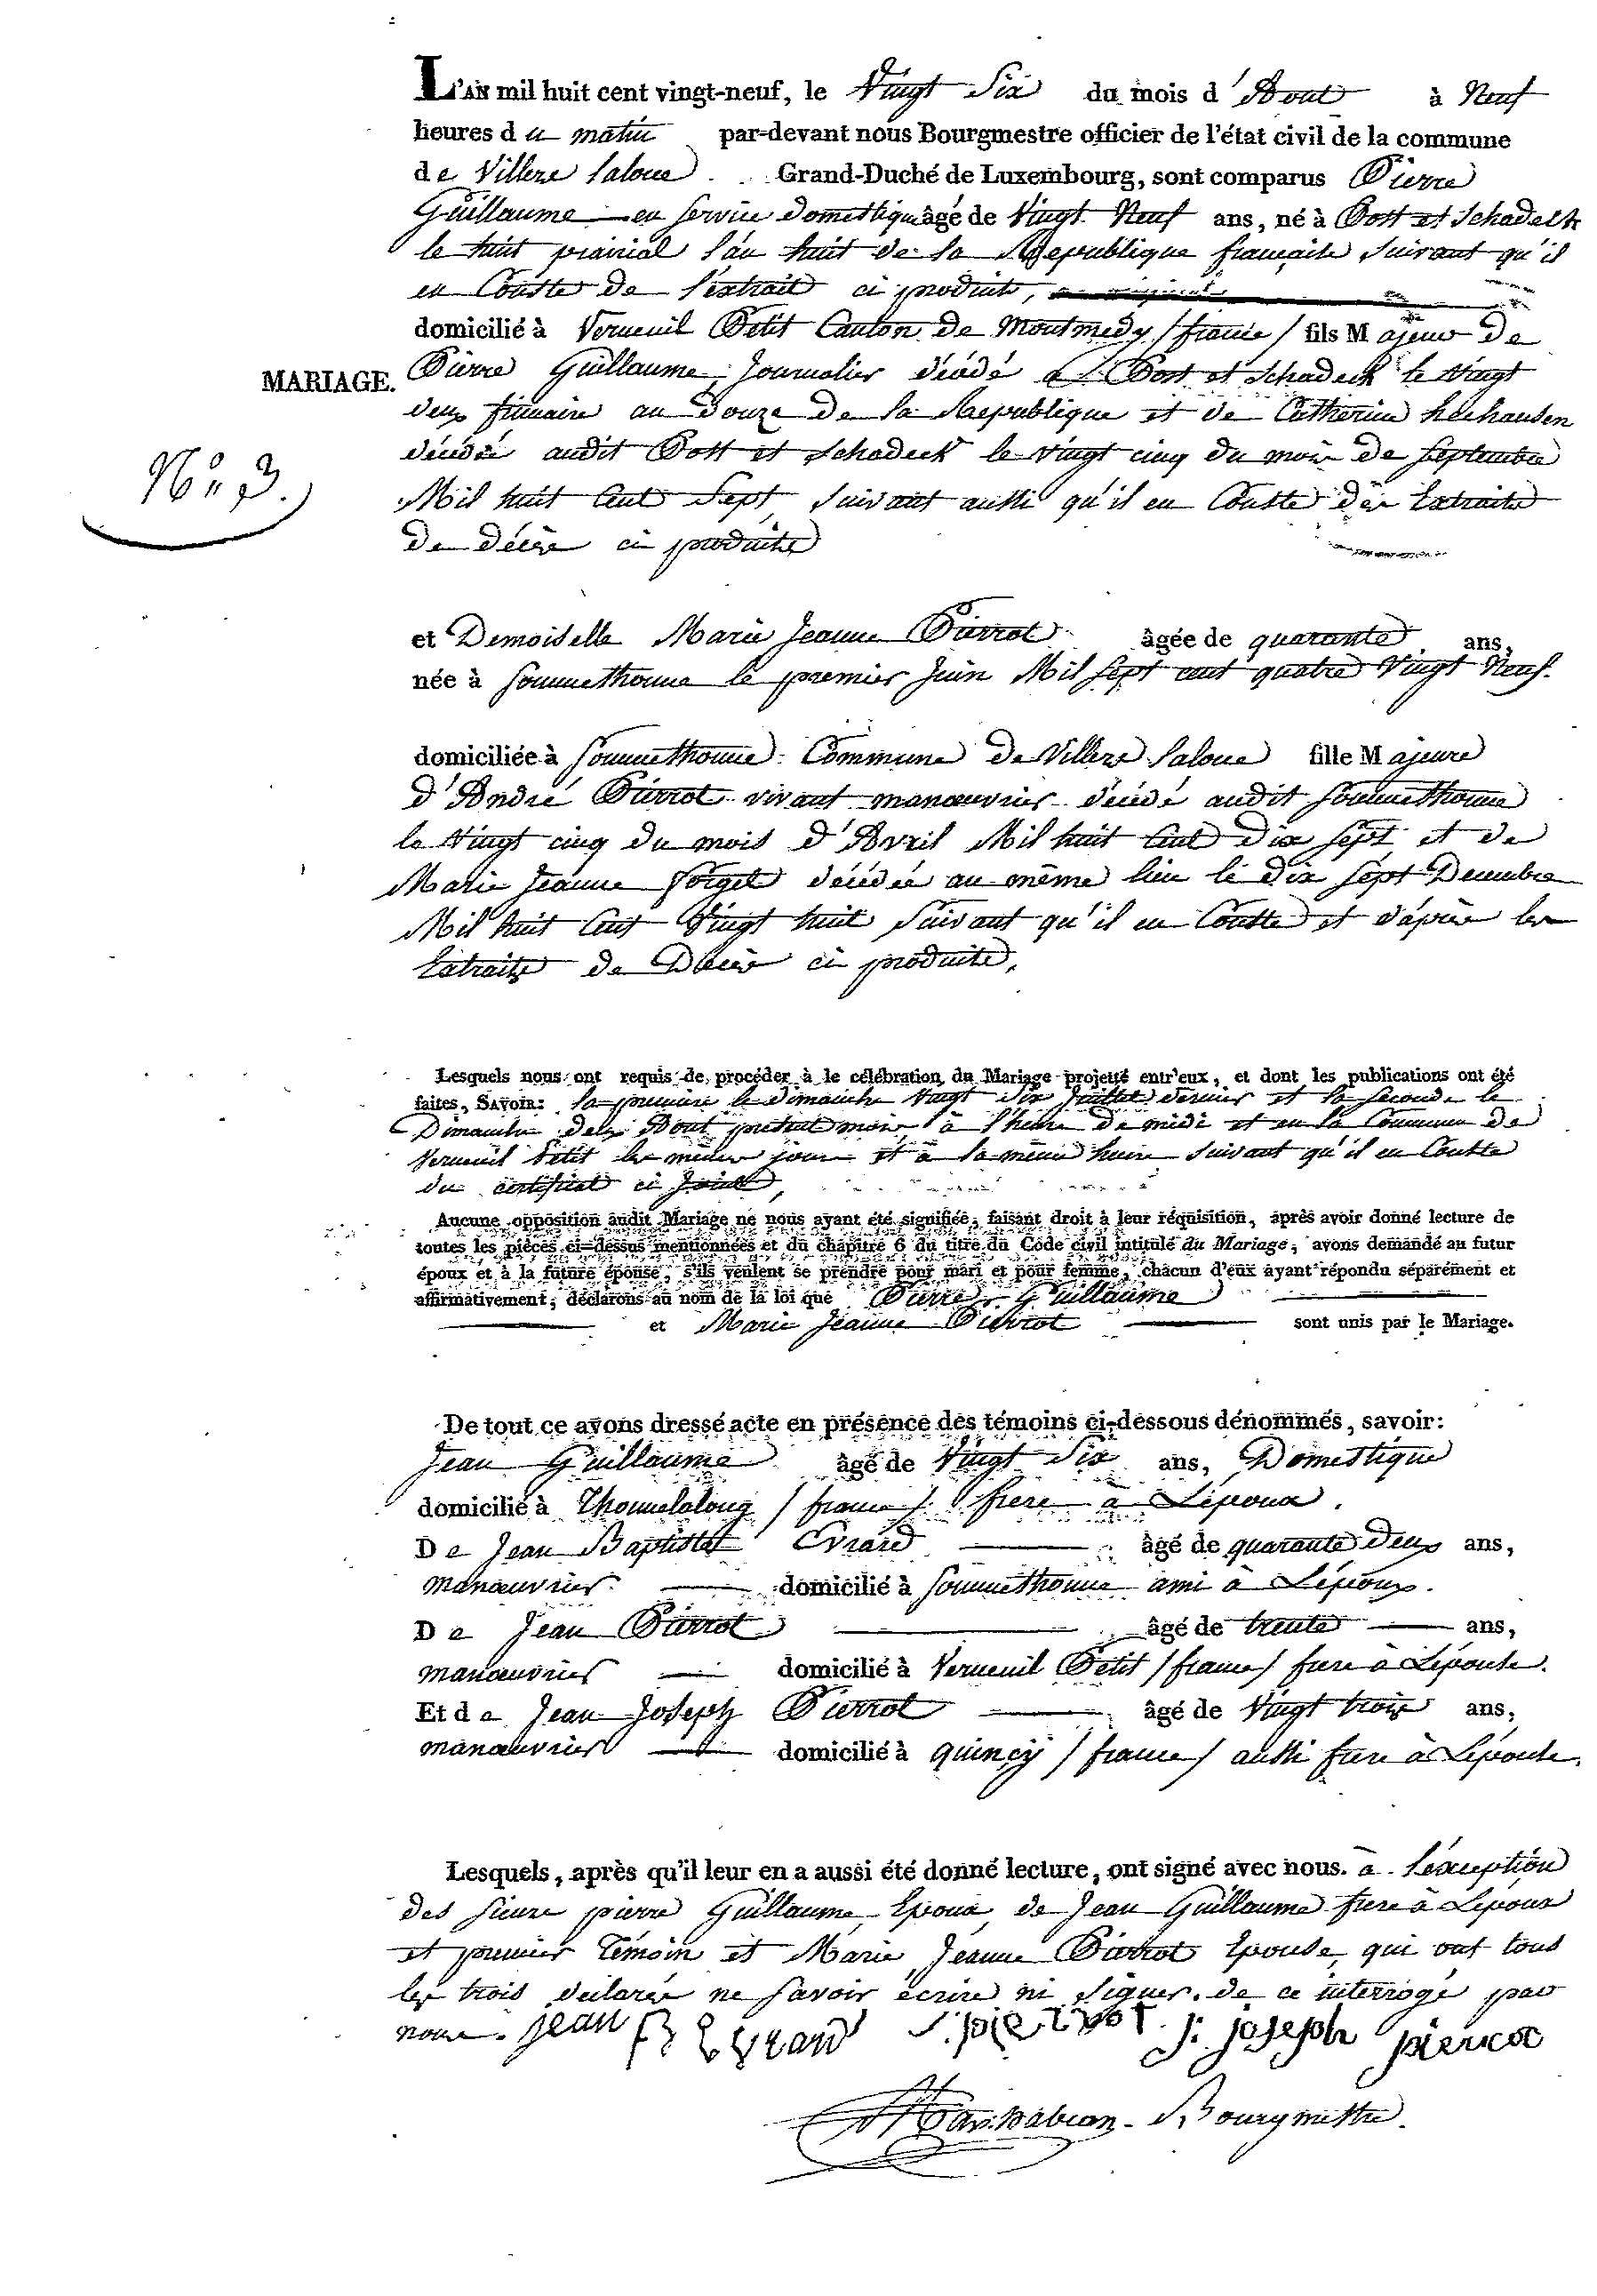 L'AN mil huit cent vingt-neuf, le Vingt Six du mois d'Aout à Neuf
heures du matin par-devant nous Bourgmestre officier de l'état civil de la commune
de Villers laloue Grand-Duché de Luxembourg, sont comparus Pierre
Guillaume en service domestique âgé de Vingt Neuf ans, né à Post et Schadeck
le huit prairial l'an huit de la Republique française suivant qu'il
en Conste de l'extrait ci produit,
domicilié à Verneuil Petit Canton de Montmedy /france/ fils Majeur de
MARIAGE.
Pierre Guillaume Journalier décédé à Post et Schadeck le Vingt
deux frimaire an Douze de la Republique et de Catherine
N° 3.
décédée audit Post et Schadeck le vingt cinq du mois de Septembre
Mil huit Cent Sept suivant aussi qu'il en Conste des Extraits
De décès ci produits
et Demoiselle Marie Jeanne Pierrot âgée de quarante ans,
née à Sommethonne le premier Juin Mil Sept cent quatre Vingt Neuf.
domiciliée à Sommethonne Commune De Villers Laloue fille Majeure
d'André Pierrot vivant manœuvrier décédé audit Sommethonne
le Vingt cinq du mois d'Avril Mil huit Cent Dix sept et de
Marie Jeanne Forget décédée au même lieu le Dix Sept Decembre
Mil huit Cent Vingt huit Suivant qu'il en Conste et d'après les
Extraits de Décès ci produits.
Lesquels nous ont requis de procéder à le célébration du Mariage projetté entr'eux, et dont les publications ont été
faites, SAVOIR: la premiere le dimanche Vingt Six Juillet dernier et la seconde le
Dimanche deux Aout présent mois à l'heure de midi et en la Commune de
Verneuil Petit les mêmes jours et à la même heure suivant qu'il en Conste
du certificat ci Joint,
Aucune opposition audit Mariage ne nous ayant été signifiée, faisant droit à leur réquisition, après avoir donné lecture de
toutes les pièces ci-dessus mentionnées et du chapitre 6 du titre du Code civil intitulé du Mariage, avons demandé au futur
époux et à la future épouse, s'ils veulent se prendre pour mari et pour femme, chacun d'eux ayant répondu séparément et
affirmativement, déclarons au nom de la loi que Pierre Guillaume
et Marie Jeanne Pierrot sont unis par le Mariage.
De tout ce avons dressé acte en présence des témoins ci-dessous dénommés, savoir:
Jean Guillaume âgé de Vingt Six ans, Domestique
domicilié à Thonnelalong /france/ frere à L'époux.
De Jean Baptiste Evrard âgé de quarante Deux ans,
manœuvrier domicilié à Sommethonne ami à L'époux.
De Jean Pierrot âgé de trente ans,
manœuvrier domicilié à Verneuil Petit /france/ frere à L'épouse.
Et de Jean Joseph Pierrot âgé de Vingt trois ans,
manœuvrier domicilié à quincy /france/ aussi frere à L'épouse.
Lesquels, après qu'il leur en a aussi été donné lecture, ont signé avec nous. à l'exception
des sieurs pierre Guillaume Epoux, de Jean Guillaume frere à L'époux
et premier Témoin et Marie Jeanne Pierrot Epouse, qui ont tous
les trois déclarés ne savoir écrire ni signer. de ce interrogé par
nous. jean B Evrard J. pierrot J: joseph pierrot
Bourgmestre.